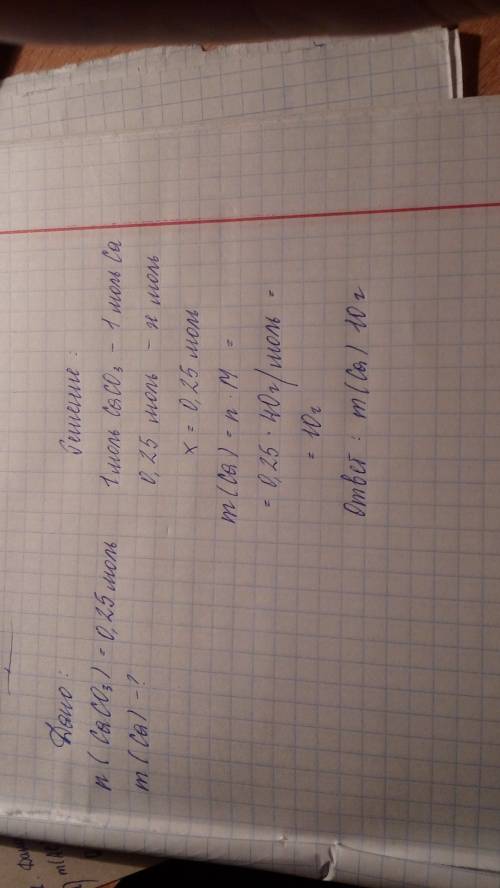 Дано:
n (CaCO₃) = 0,25 моль
m (Ca) - ?
Решение:
1 моль CaCO₃ - 1 моль Ca
0,25 моль - х моль
х = 0,25 моль
m (Ca) = n · M =
= 0,25 · 40 г/моль =
= 10 г
Ответ: m (Ca) 10 г